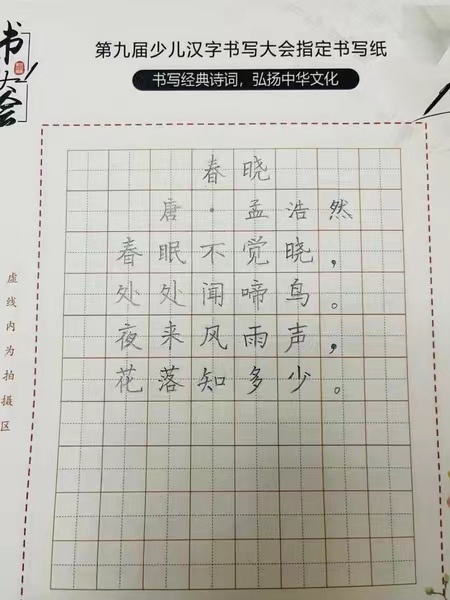 书
大
会
第九届少儿汉字书写大会指定书写纸
书写经典诗词，弘扬中华文化
春晓
唐·孟浩然
春眠不觉晓，
处处闻啼鸟。
夜来风雨声，
花落知多少。
虚线内为拍摄区